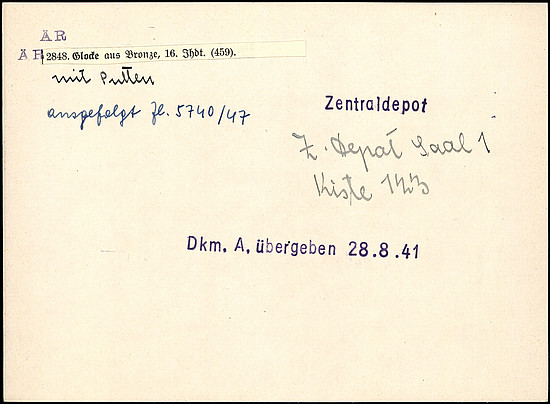 ÄR
ÄR 2848. Glocke aus Bronze, 16. Jhdt. (459).
mit Putten
ausgefolgt Zl. 5740/47
Zentraldepot
Z. Depot Saal 1
Kiste 123
Dkm. A. übergeben 28.8.41